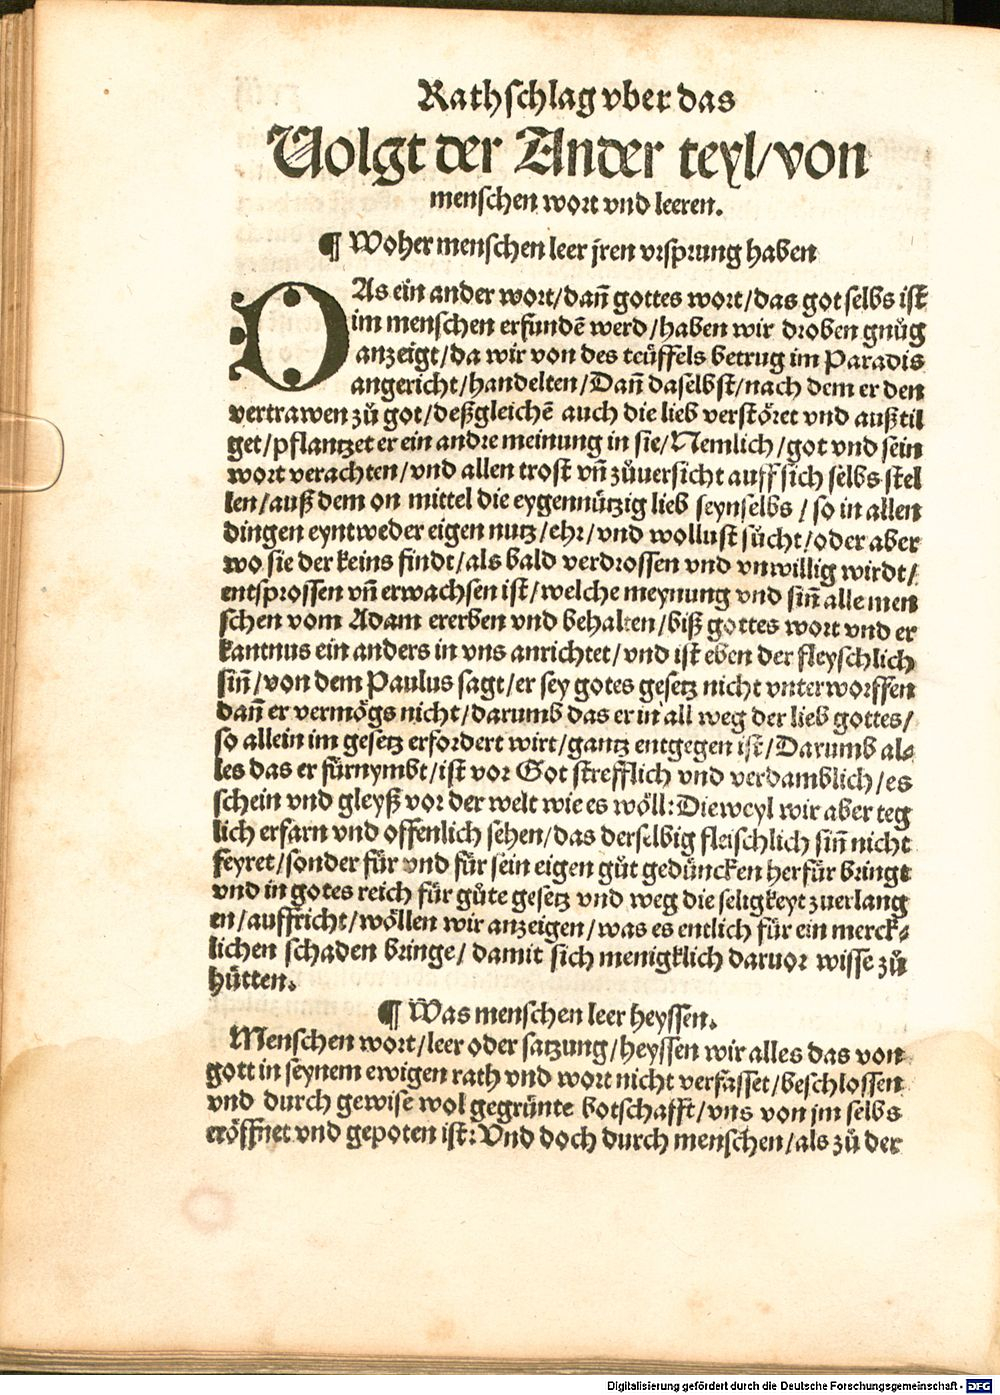 Rathschlag vber das
Volgt der Ander teyl/von
menschen wort vnd leeren.
¶ Woher menschen leer jren vrsprung haben
DAs ein ander wort/dañ gottes wort/das got selbs ist
im menschen erfundē werd/haben wir droben gnůg
anzeigt/da wir von des teüffels betrug im Paradis
angericht/handelten/Dañ daselbst/nach dem er den
vertrawen zů got/deßgleichē auch die lieb verstöret vnd außtil
get/pflantzet er ein andre meinung in sie/Nemlich/got vnd sein
wort verachten/vnd allen trost vñ zůuersicht auff sich selbs stel
len/auß dem on mittel die eygennützig lieb seynselbs/so in allen
dingen eyntweder eigen nutz/ehr/vnd wollust sůcht/oder aber
wo sie der keins findt/als bald verdrossen vnd vnwillig wirdt/
entsprossen vñ erwachsen ist/welche meynung vnd siñ alle men
schen vom Adam ererben vnd behalten/biß gottes wort vnd er
kantnus ein anders in vns anrichtet/vnd ist eben der fleyschlich
siñ/von dem Paulus sagt/er sey gotes gesetz nicht vnterworffen
dañ er vermögs nicht/darumb das er in all weg der lieb gottes/
so allein im gesetz erfordert wirt/gantz entgegen ist/Darumb al⸗
les das er fürnymbt/ist vor Got strefflich vnd verdamblich/es
schein vnd gleyß vor der welt wie es wöll: Dieweyl wir aber teg
lich erfarn vnd offenlich sehen/das derselbig fleischlich siñ nicht
feyret/sonder für vnd für sein eigen gůt gedüncken herfür bringt
vnd in gotes reich für gůte gesetz vnd weg die seligkeyt zuerlang
en/auffricht/wöllen wir anzeigen/was es entlich für ein merck⸗
lichen schaden bringe/damit sich menigklich daruor wisse zů
hütten.
¶ Was menschen leer heyssen.
Menschen wort/leer oder satzung/heyssen wir alles das von
gott in seynem ewigen rath vnd wort nicht verfasset/beschlossen
vnd durch gewise wol gegrünte botschafft/vns von jm selbs
eröffnet vnd gepoten ist: Vnd doch durch menschen/als zů der
Digitalisierung gefördert durch die Deutsche Forschungsgemeinschaft - DFG